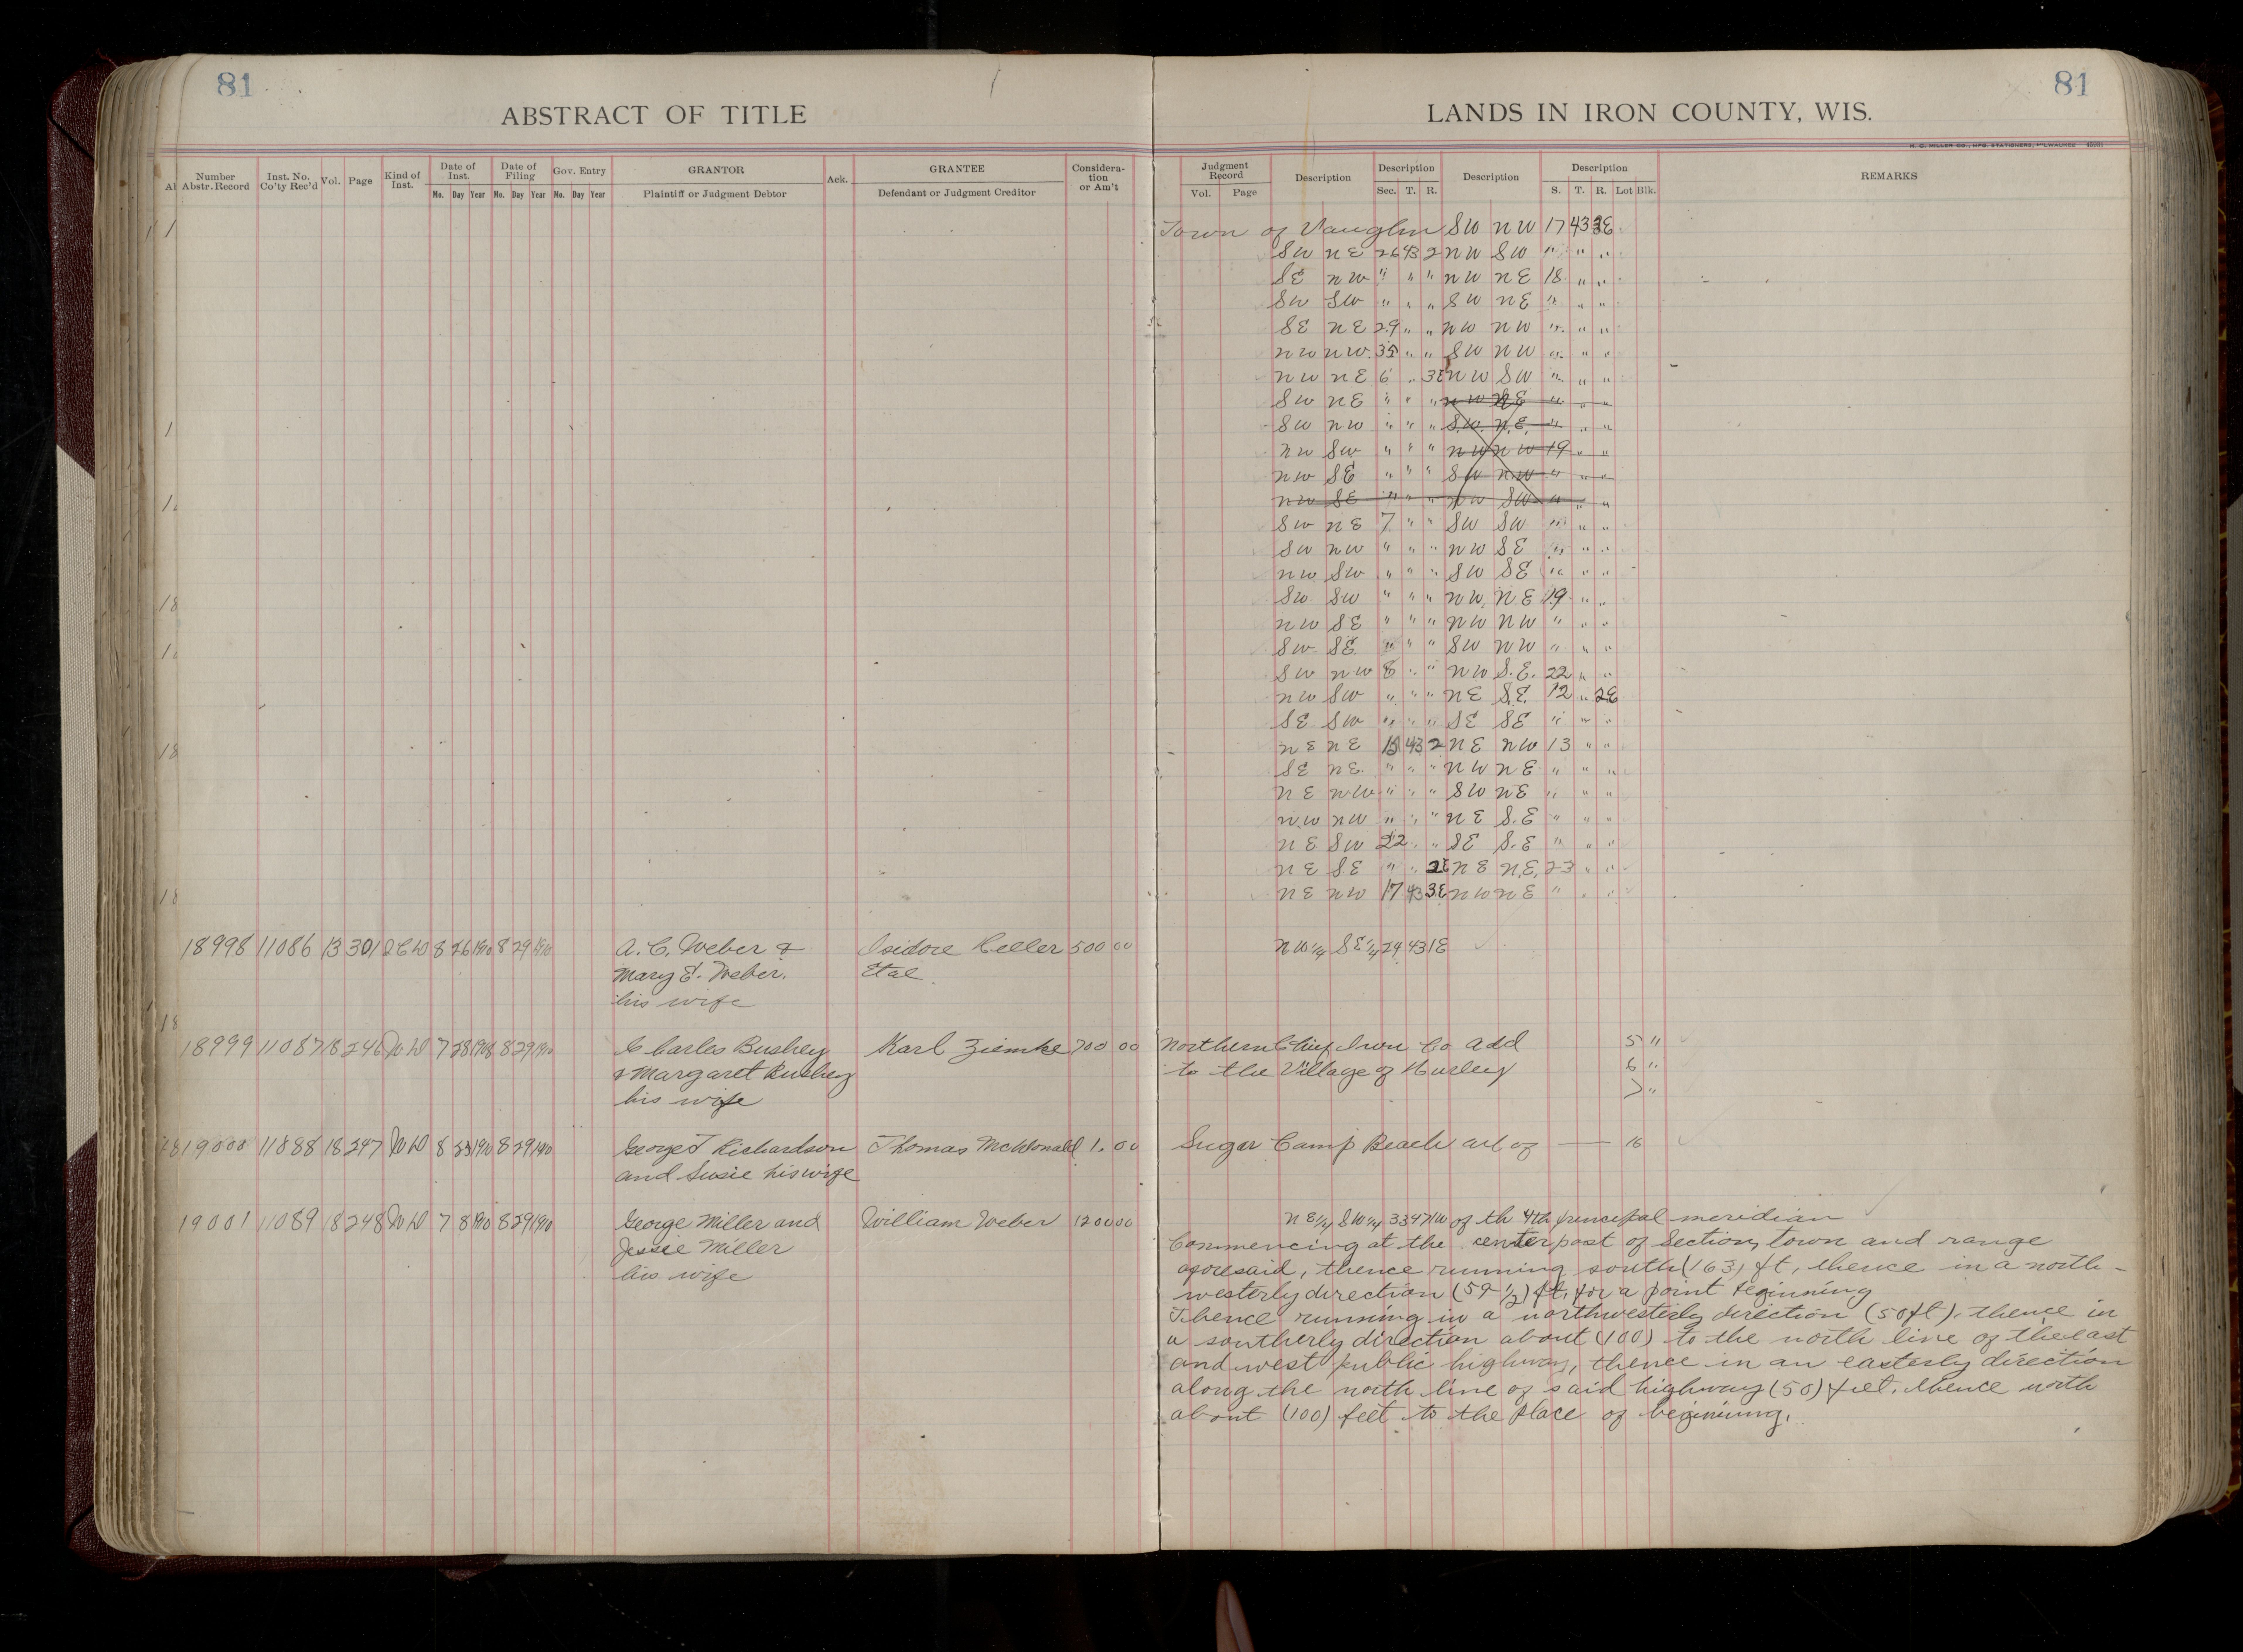 81
81
ABSTRACT OF TITLE
LANDS IN IRON COUNTY, WIS.
H. C. MILLER CO., MFG. STATIONERS, MILWAUKEE
Number Abstr. Record Inst. No. Co'ty Rec'd Vol. Page Kind of Inst. Date of Inst. Mo. Day Year Date of Filing Mo. Day Year Gov. Entry Mo. Day Year GRANTOR Plaintiff or Judgment Debtor Ack. GRANTEE Defendant or Judgment Creditor Considera-tion or Am't
Judgment Record Vol. Page Description Description Sec. T. R. Description Description S. T. R. Lot Blk. REMARKS
Town of Vaughn SW NW 17 43 3E
SW NE 26 43 2 NW SW " " "
SE NW " " " NW NE 18 " "
SW SW " " " SW NE " " "
SE NE 29 " " NW NW " " "
NW NW 35 " " SW NW " " "
NW NE 6 " 3E NW SW " " "
SW NE " " " NW SE " " "
SW NW " " " S.W. N.E. " " "
NW SW " " " NW NW 19 " "
NW SE " " " SW NW " " "
NW SE " " " NW SW " " "
SW NE 7 " " SW SW " " "
SW NW " " " NW SE " " "
NW SW " " " SW SE " " "
SW SW " " " NW NE 19 " "
NW SE " " " NW NW " " "
SW SE " " " SW NW " " "
SW NW 8 " " NW S.E. 22 " "
NW SW " " " NE S.E. 12 " 2E
SE SW " " " SE SE " " "
NE NE 15 43 2 NE NW 13 " "
SE NE " " " NW NE " " "
NE NW " " " SW NE " " "
NW NW " " " NE S.E " " "
NE SW 22 " " SE S.E " " "
NE SE " " 2E NE N.E. 23 " "
NE NW 17 43 3E NW NE " " "
18998 11086 13 301 QCW 8 26 190 8 29 190 A. C. Weber & Isidore Celler 500 00 NW 1/4 SE 1/4 24 43 1E
Mary E. Weber. Etal
his wife
18999 11087 18 246 WD 7 28 1908 8 29 190 Charles Bushey Karl Ziemke 700 00 Northern Chief Iron Co Add 5 "
& Margaret Bushey to the Village of Hurley 6 "
his wife 7 "
19000 11088 18 247 WD 8 23 190 8 29 190 George T Richardson Thomas McDonald 1. 00 Sugar Camp Beach all of — 16
and Susie his wife
19001 11089 18 248 WD 7 8 190 8 29 190 George Miller and William Weber 1200 00 NE 1/4 SW 1/4 33 47 1W of th 4th principal meridian
Jessie Miller Commencing at the center post of Section, town and range
his wife aforesaid, thence running south (163) ft, thence in a north-
westerly direction (59 1/2) ft, for a point beginning
Thence running in a northwesterly direction (50 ft). thence in
a southerly direction about (100) to the north line of the east
and west public highway, thence in an easterly direction
along the north line of said highway (50) feet. thence north
about (100) feet to the place of beginning.